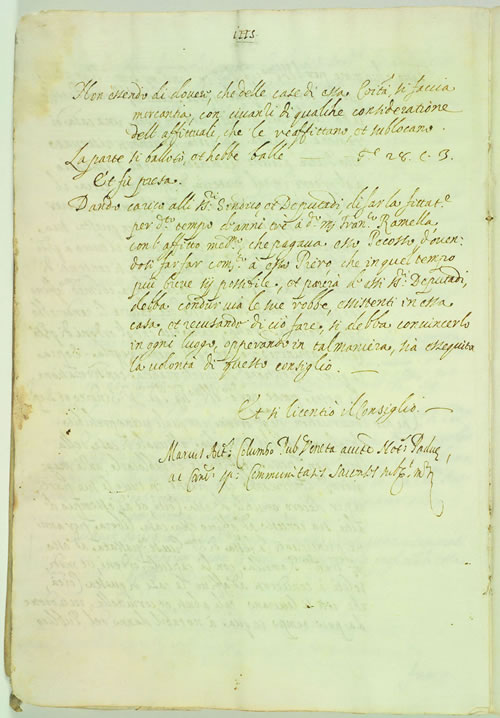 Non essendo di dovere, che delle case di essa Cortà, si faccia
mercantia, con avanzi di qualche consideratione
dell'affittuali che le reaffittano, et sublocano.
La parte si ballotò, et hebbe balle — 28. c. 3.
Et fù presa.
Dando carico alli Sindico et Deputadi di far la fittat.e
per tempo d'anni tre à Ramella
con l'affitto med.o, che pagava esso Pecosso
far far à esso Piero, che in quel tempo
più breve possibile, et parerà à essi Deputadi,
debba condur via le sue robbe, esistenti in essa
casa, et recusando di ciò fare, si debba convincerlo
in ogni luogo, opperando in tal maniera, sia esseguita
la volontà di questo consiglio. —
Et si licentiò il Consiglio. —
Marcus Columbo Pub. Veneta Not.
ac Communitatis